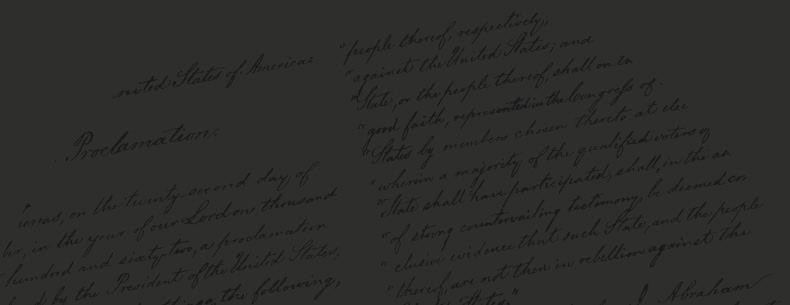 nited States of America:
Proclamation.
ereas, on the twenty-second day of
ber, in the year of our Lord one thousand
hundred and sixty-two, a proclamation
by the President of the United States,
the following,
"people thereof, respectively,
"against the United States; and
"State, or the people thereof, shall on
"good faith, represented in the Congress of
"States by members chosen thereto at elec
"wherein a majority of the qualified voters of
"State shall have participated, shall, in the
"of strong countervailing testimony, be deemed con
"clusive evidence that such State, and the people
"thereof, are not then in rebellion against the
States."
Abraham